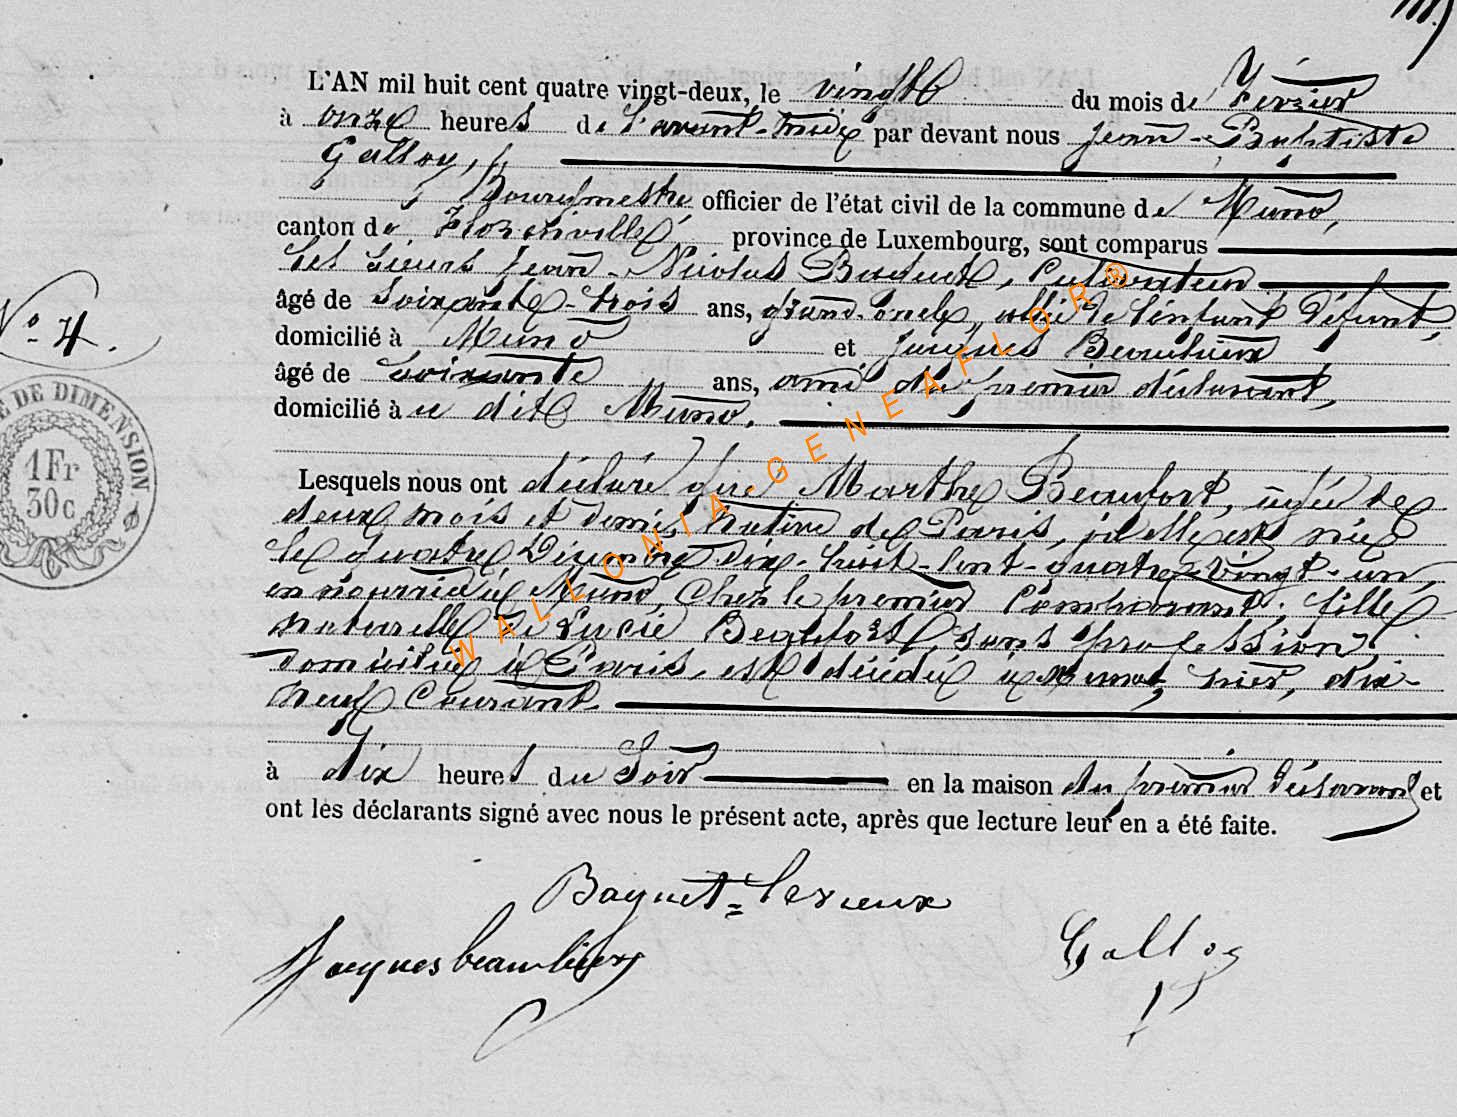 L'AN mil huit cent quatre vingt-deux, le vingt du mois de Février
à onze heures de l'avant-midi par devant nous Jean-Baptiste
Galloy,
Bourgmestre, officier de l'état civil de la commune de Muno,
canton de Florenville, province de Luxembourg, sont comparus
les sieurs Jean-Nicolas Baquet, Cultivateur
âgé de soixante-trois ans, grand-oncle, allié de l'enfant défunt,
domicilié à Muno et Jacques Beaulieux
N° 4.
âgé de soixante ans, ami du premier déclarant,
domicilié à u dit Muno.
E DE DIMENSION
1Fr
30c
Lesquels nous ont déclaré que Marthe Beaufort, âgée de
deux mois et demi, native de Paris, où elle est née
le quatre Décembre dix-huit-cent-quatre-vingt-un,
en nourrice à Muno chez le premier comparant, fille
naturelle de Lucie Beaufort, sans profession,
domiciliée à Paris, est décédée à Muno, hier, dix-
neuf courant
à dix heures du soir en la maison du premier déclarant et
ont les déclarants signé avec nous le présent acte, après que lecture leur en a été faite.
Baquet=lerieux
Jacques beaulieux
Galloy
WALLONIA-GENEAFLOR®